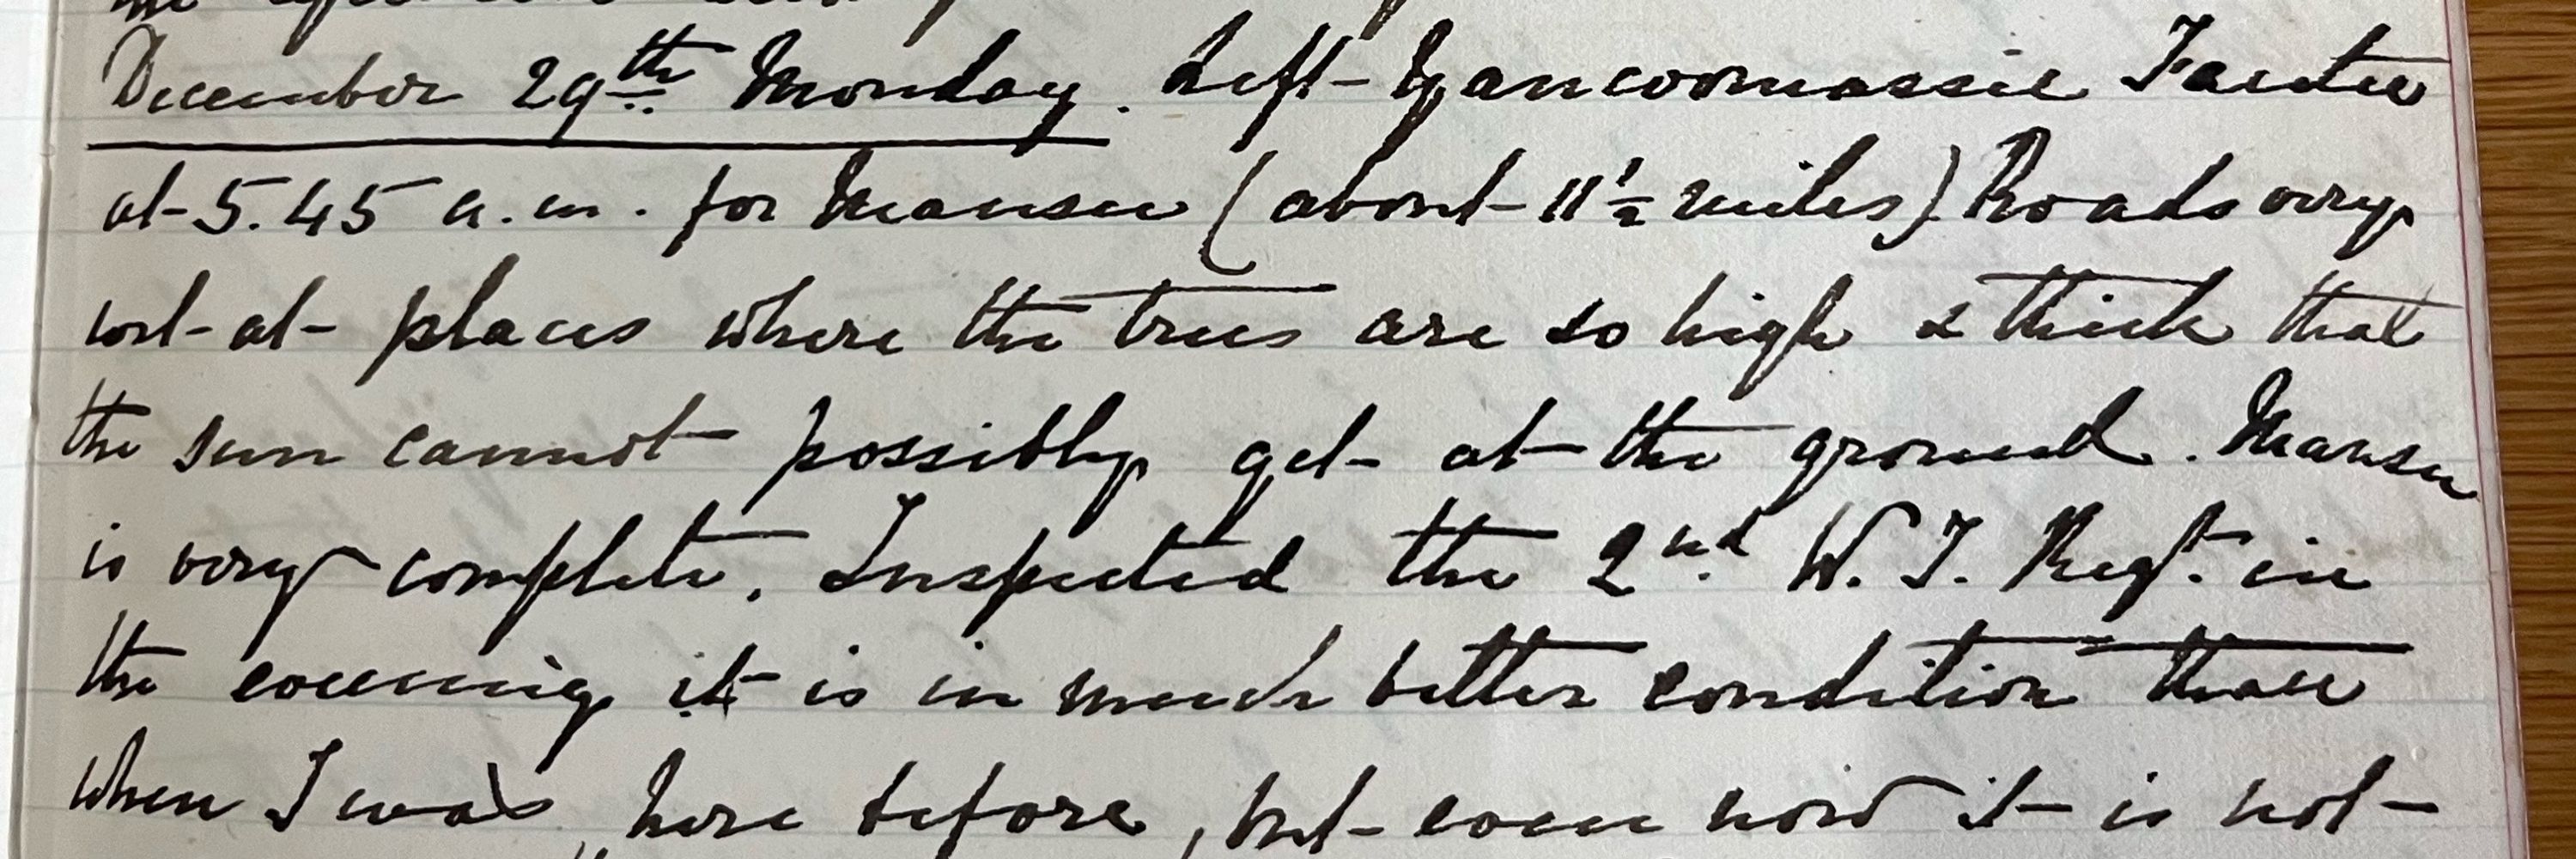 December 29th Monday. Left Yancoomassie Fantee
at 5.45 a.m. for Mansu (about 11½ miles) Roads very
wet at places where the trees are so high & thick that
the sun cannot possibly get at the ground. Mansu
is very complete. Inspected the 2nd W. I. Regt. in
the evening it is in much better condition than
when I was here before, but even now it is not